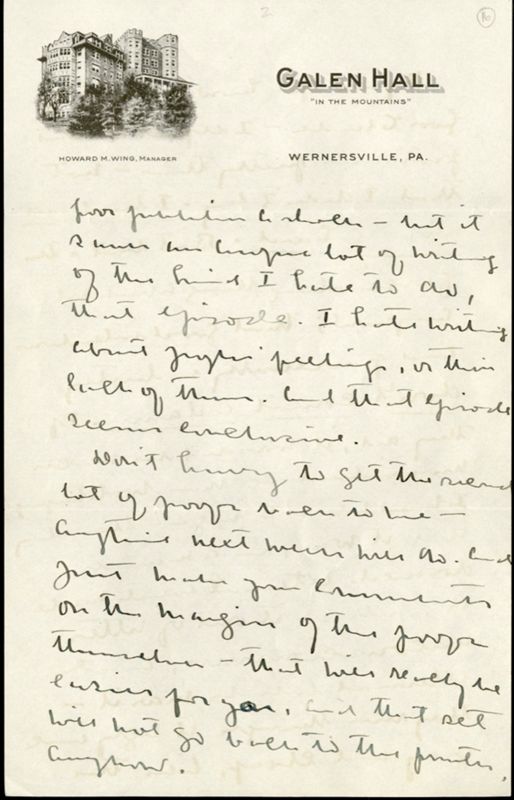 2
16
GALEN HALL
"IN THE MOUNTAINS"
HOWARD M. WING, MANAGER
WERNERSVILLE, PA.
for — but it
lot of writing
of the kind I hate to do,
that episode. I hate writing
about people's feelings, or their
lack of them. And that episode
seems conclusive.
Don't hurry to get the second
lot of proofs back to me —
Anytime next week will do. And
just make your comments
on the margin of the proofs
themselves — that will really be
easier for you, and that set
will not go back to the printer,
anyhow.